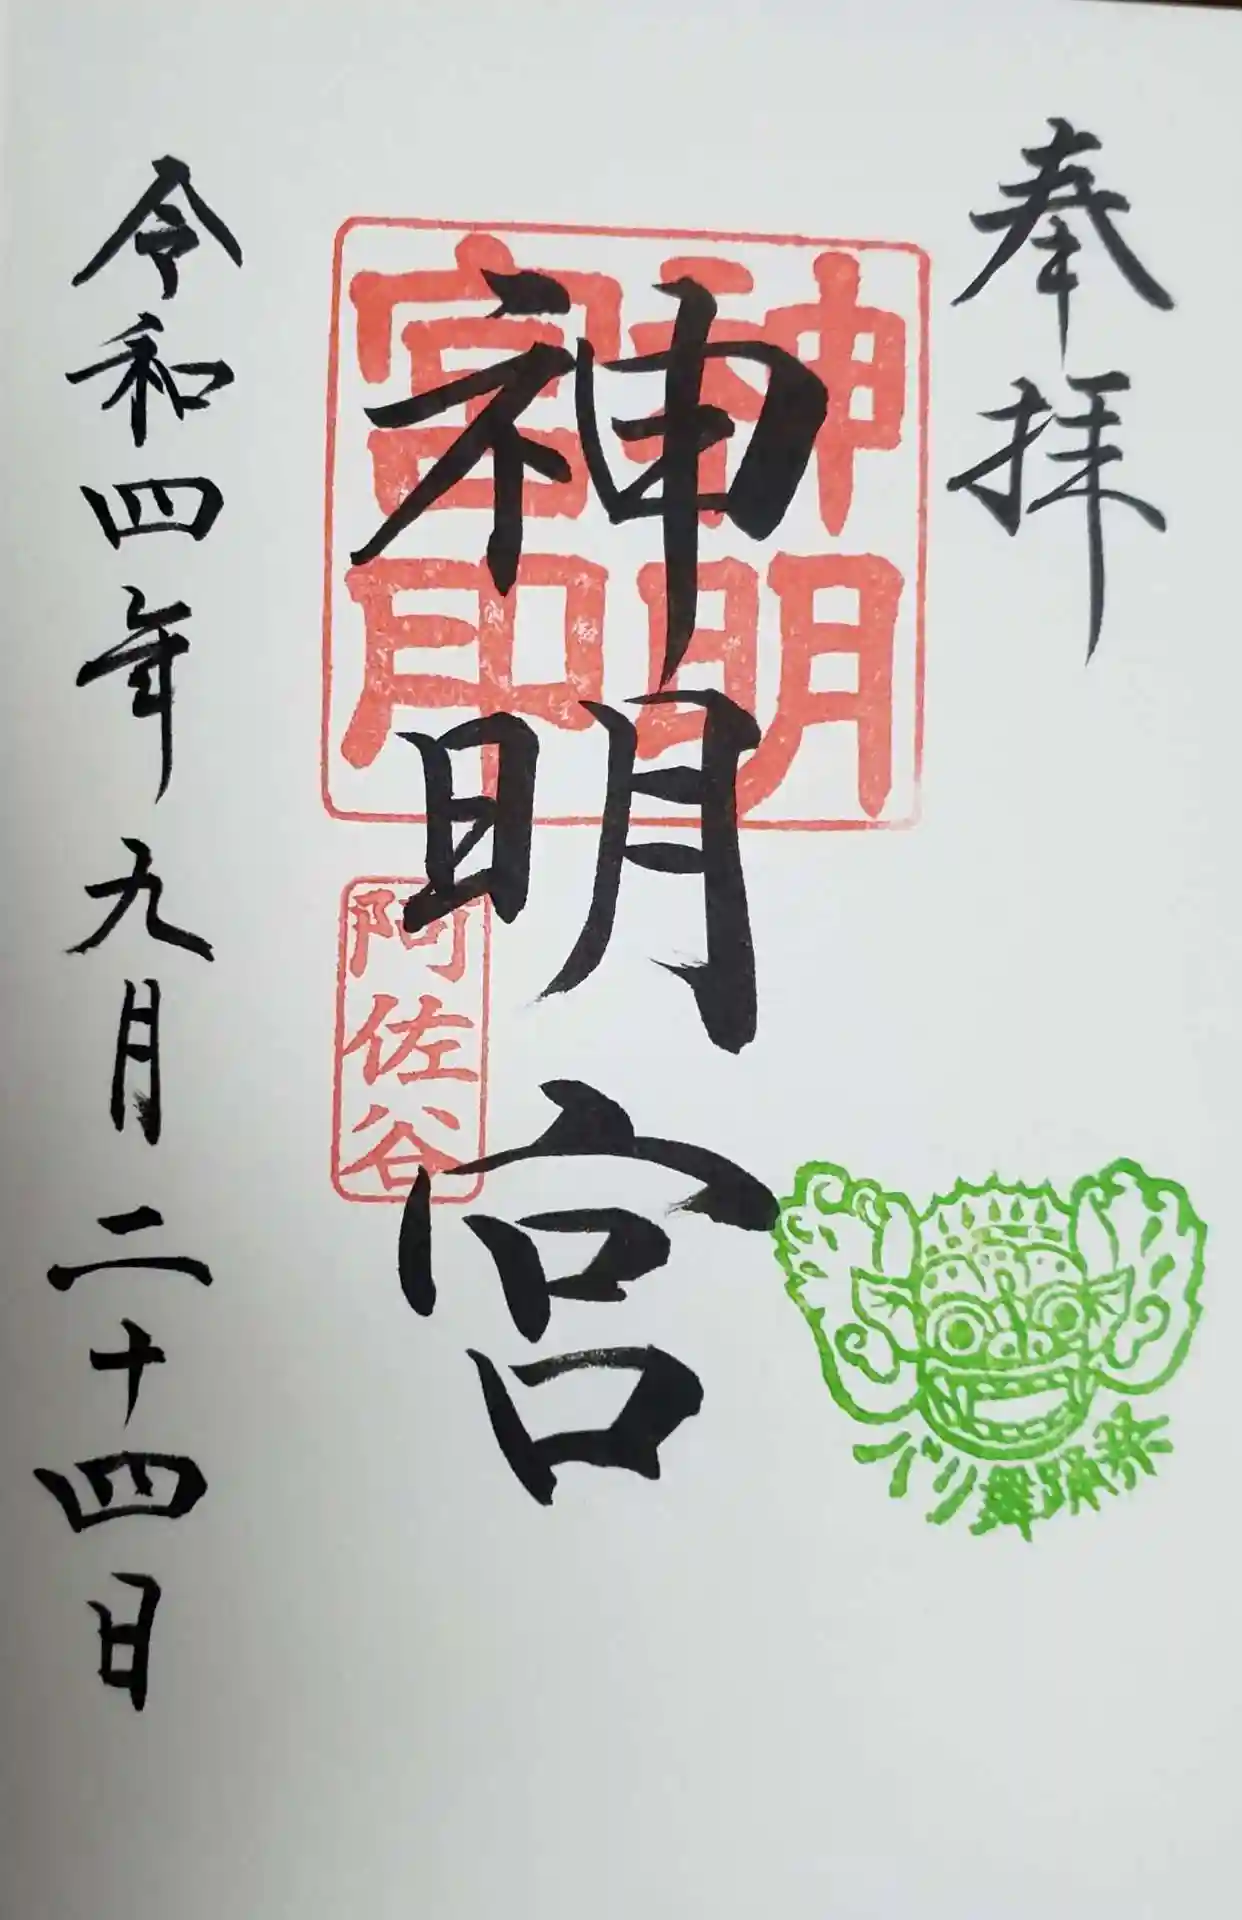 奉拝
神明宮印
神明宮
阿佐谷
バリ舞踊祭
令和四年九月二十四日